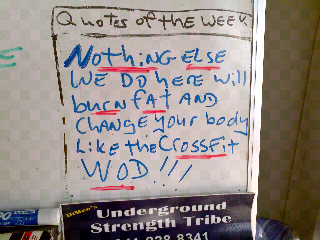 Quotes of the week
Nothing else
we do here will
burn fat and
change your body
like the CrossFit
WOD !!!
DiMeo's
Underground
Strength Tribe
238-8341